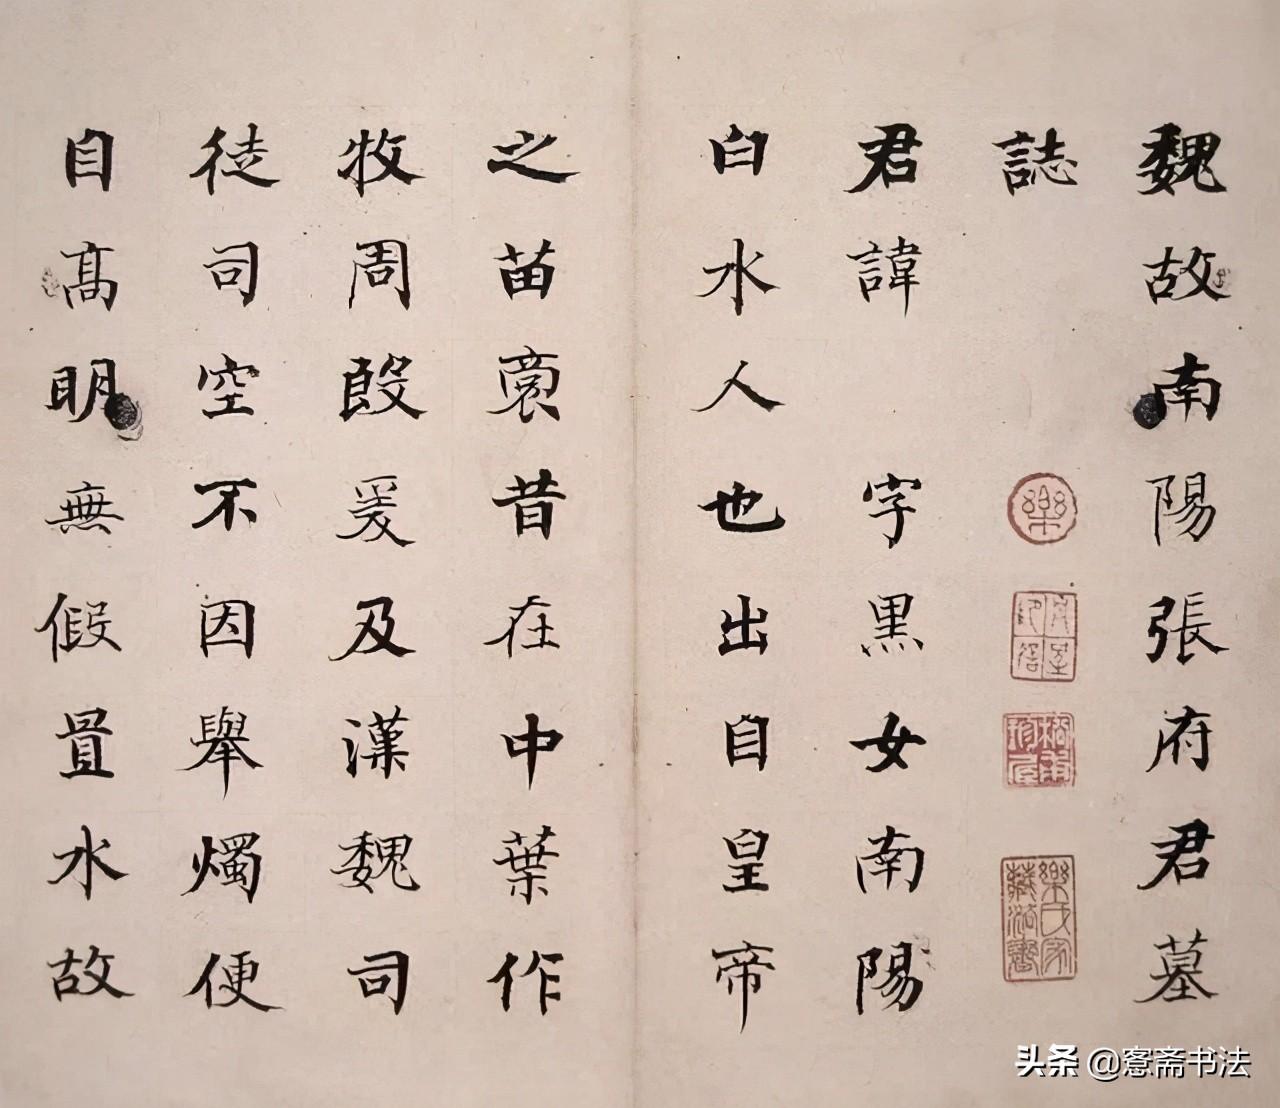 魏故南陽張府君墓
誌
君諱 字黑女南陽
白水人也出自皇帝
之苗裔昔在中葉作
牧周殷爰及漢魏司
徒司空不因舉燭便
自高明無假置水故
樂
樂氏家藏浴書
头条 @窓斋书法